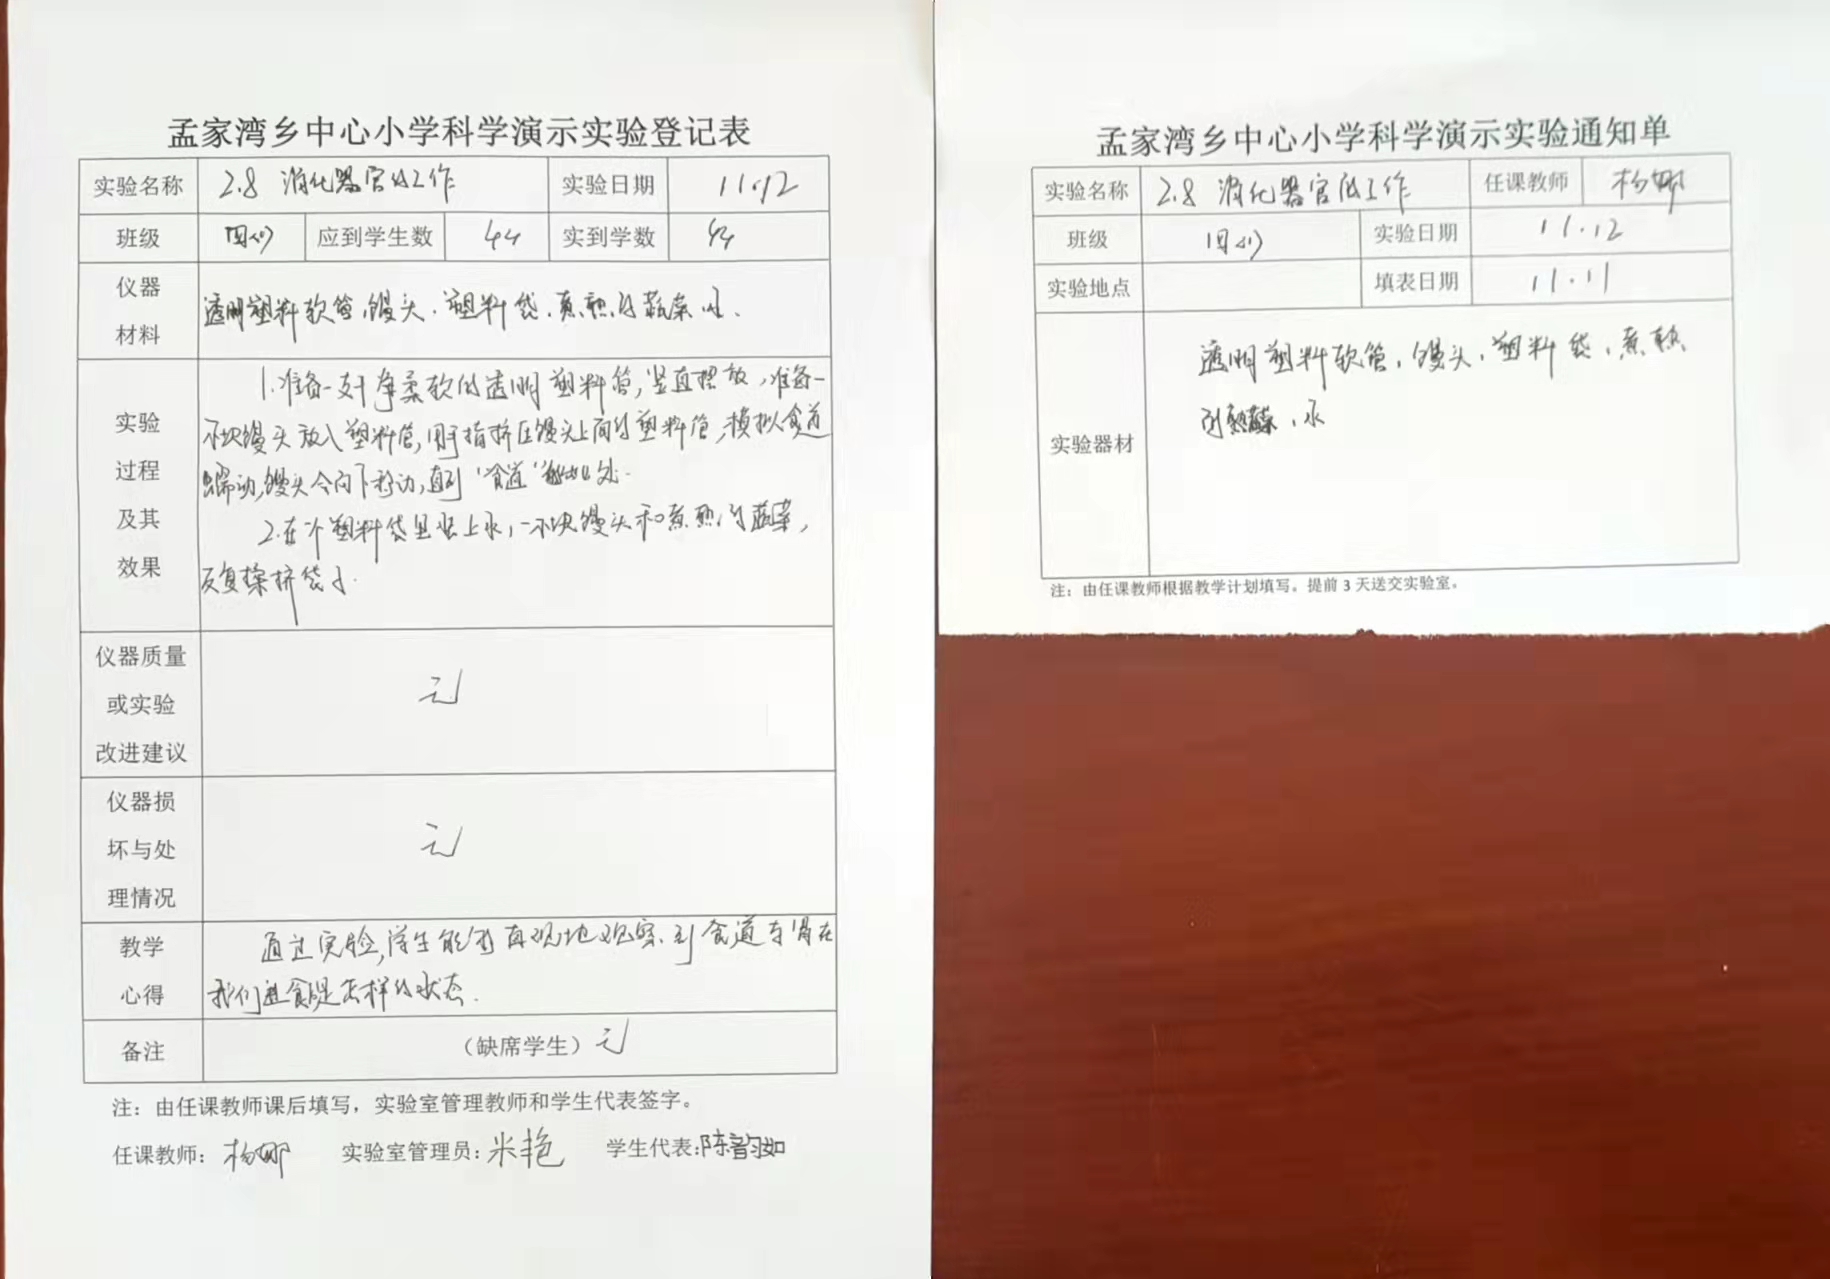 孟家湾乡中心小学科学演示实验登记表
实验名称 2.8 消化器官的工作 实验日期 11.12
班级 四(1) 应到学生数 44 实到学数 44
仪器
材料
透明塑料软管、馒头、塑料袋、煮熟的蔬菜、水.
实验
过程
及其
效果
1.准备一支干净柔软的透明塑料管,竖直摆放,准备一
小块馒头放入塑料管,用手指挤压馒头上面的塑料管,模拟食道
蠕动,馒头会向下移动,直到"食道"处.
2.在个塑料袋里装上水,一小块馒头和煮熟的蔬菜,
反复揉挤袋子.
仪器质量
或实验
改进建议
无
仪器损
坏与处
理情况
无
教学
心得
通过实验,学生能够直观地观察到食道与胃在
我们进食时是怎样的状态.
备注 (缺席学生) 无
注：由任课教师课后填写，实验室管理教师和学生代表签字。
任课教师: 杨娜 实验室管理员: 米艳 学生代表: 陈韵如
孟家湾乡中心小学科学演示实验通知单
实验名称 2.8 消化器官的工作 任课教师 杨娜
班级 四(1) 实验日期 11.12
实验地点 填表日期 11.11
实验器材
透明塑料软管、馒头、塑料袋、煮熟
的蔬菜、水
注：由任课教师根据教学计划填写。提前 3 天送交实验室。